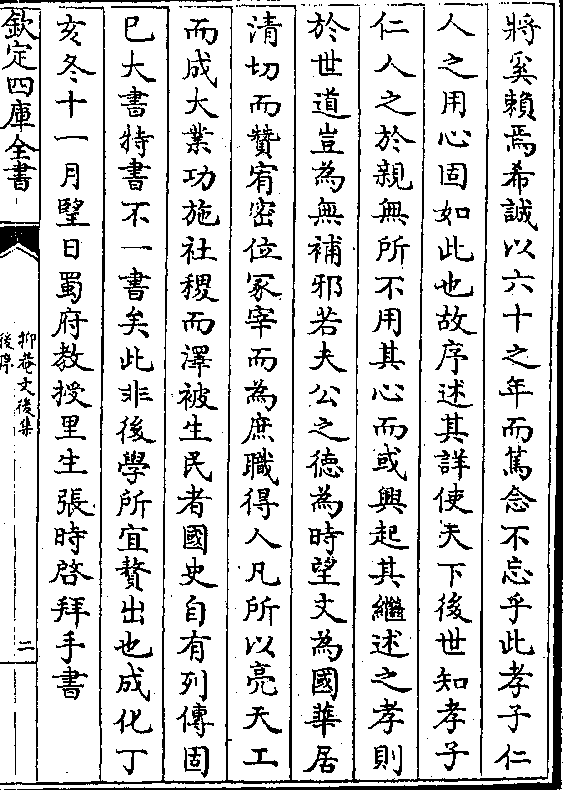 將奚賴焉希誠以六十之年而篤念不忘乎此孝子仁
人之用心固如此也故序述其詳使天下後世知孝子
仁人之於親無所不用其心而或興起其繼述之孝則
於世道豈為無補邪若夫公之徳為時望文為國華居
清切而贊宥密位冢宰而為庶職得人凡所以亮天工
而成大業功施社稷而澤被生民者國史自有列傳固
已大書特書不一書矣此非後學所宜贅出也成化丁
亥冬十一月朢日蜀府教授里生張時啓拜手書
欽定四庫全書
抑菴文後集
後序
二